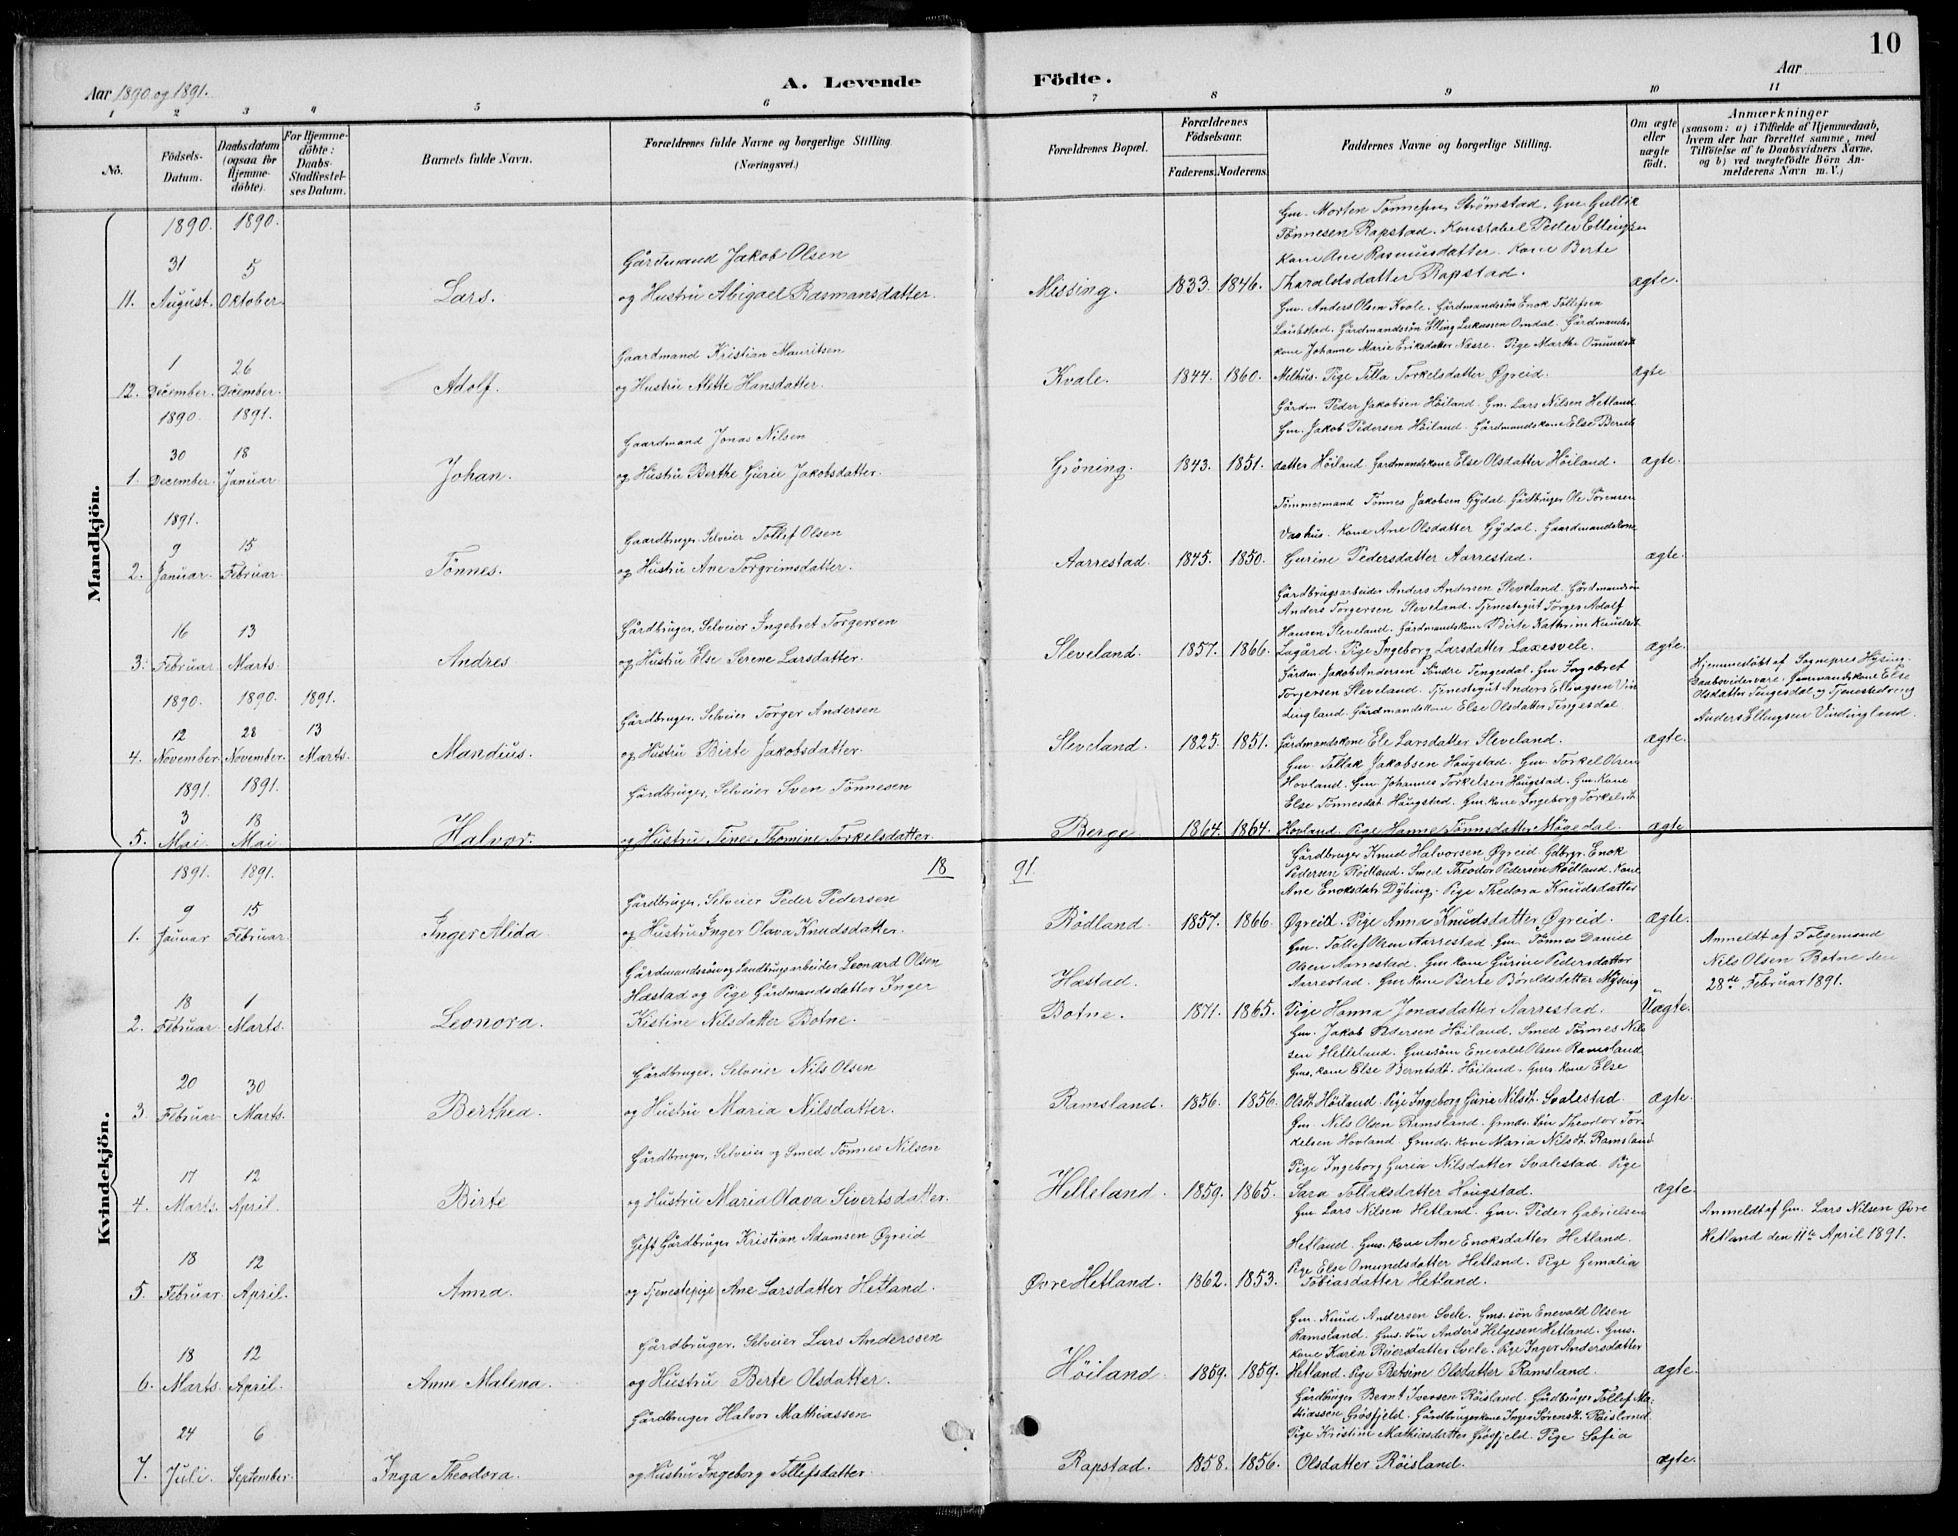 10
Aar 1890 og 1891.
A. Levende Födte.
Aar
1 2 3 4 5 6 7 8 9 10 11
Nö.
Födsels-Datum.
Daabsdatum (ogsaa for Hjemmedöbte).
For Hjemmedöbte: Daabs-Stadfæstelses Datum.
Barnets fulde Navn.
Forældrenes fulde Navne og borgerlige Stilling. (Næringsvei.)
Forældrenes Bopæl.
Forældrenes Födselsaar.
Faderens. Moderens.
Faddernes Navne og borgerlige Stilling.
Om ægte eller uægte født.
Anmærkninger
(saasom: a) i Tilfælde af Hjemmedaab, hvem der har forrettet samme, med Tilföielse af to Daabsvidners Navne, og b) ved uægtefödte Börn Anmelderens Navn m. V.)
Mandkjön.
1890. 1890.
31 5
11. August. Oktober.
Lars.
Gårdmand Jakob Olsen
og Hustru Abigael Rasmansdatter.
Messing. 1833. 1846.
Gm. Morten Tønnesen Strømstad. Gm. Gullik
Tønnesen Rapstad. Konstabel Peder Ellingsen
Kone Ane Rasmusdatter. Kone Berte
Tharaldsdatter Rapstad.
ægte.
1 26
12. December. December.
Adolf.
Gaardmand Kristian Mauritsen
og Hustru Alette Hansdatter.
Kvale. 1844. 1860.
Gm. Anders Olsen Kvale. Gårdmandssøn Enok Tollefsen
Laudstad. Gårdmandssøn Elling Lukassen Omdal. Gårdmands
kone Johanne Marie Eriksdatter Næsre. Pige Marthe Omundsdt.
Melhus. Pige Tilla Torkelsdatter Øgreid.
ægte
1890. 1891.
30 18
1. December. Januar.
Johan.
Gaardmand Jonas Nilsen
og Hustru Berthe Gurie Jakobsdatter.
Grøning. 1843. 1851.
Gårdm Peder Jakobsen Höiland. Gm. Lars Nilsen Hetland
Gm. Jakob Pedersen Höiland. Gårdmandskone Else Berndt
datter Höiland. Gårdmandskone Else Olsdatter Höiland.
ægte.
1891.
9 15
2. Januar. Februar.
Tönnes.
Gaardbruger Selveier Tollef Olsen
og Hustru Ane Torgrimsdatter.
Aarrestad. 1845. 1850.
Tømmermand Tönnes Jakobsen Gydal. Gårdbruger Ole Sörensen
Vashus. Kone Ane Olsdatter Gydal. Gaardmandskone
Gurine Pedersdatter Aarrestad.
ægte.
16 13
3. Februar. Marts.
Andres
Gårdbruger, Selveier Ingebret Torgersen
og Hustru Else Serene Larsdatter.
Sleveland. 1857. 1866.
Gårdbrugsarbeider Anders Andersen Sleveland. Gårdmandssøn
Anders Torgersen Sleveland. Tjenestegut Torger Adolf
Hansen Sleveland. Gårdmandskone Birte Kathrin Knudsdt
Lagård. Pige Ingeborg Larsdatter Laxesvele.
ægte.
1890. 1890. 1891.
12 28 13
4. November. November. Marts.
Mandius.
Gårdbruger, Selveier Torger Andersen
og Hustru Birte Jakobsdatter.
Sleveland. 1825. 1851.
Gårdm. Jakob Andersen Söndre Tengesdal. Gm Ingebret
Torgersen Sleveland. Tjenestgut Anders Ellingsen Vin
dingland. Gårdmandskone Else Olsdatter Tengesdal
Gårdmandskone Ele Larsdatter Sleveland.
ægte.
Hjemmedöbt af Sognepres Hysing.
Daabsvidner vare: Gårdmandskone Else
Olsdatter Tengesdal og Tjenestedreng
Anders Ellingsen Vindingland.
1891. 1891.
3 18
5. Mai. Mai
Halvor.
Gårdbruger, Selveier Sven Tönnesen
og Hustru Tine Thomine Torkelsdatter.
Berge 1864. 1864.
Gm. Tollak Jakobsen Haugstad. Gm. Torkel Olsen
Hovland. Gm. Johannes Torkelsen Haugstad. Gm. Kone
Else Tönnesdat. Haugstad. Gm. kone Ingeborg Torkelsdt
Hovland. Pige Hanne Tönnesdatter Mögedal.
ægte
Kvindekjön.
1891
1891. 1891.
9 15
1. Januar Februar.
Inger Alida.
Gårdbruger, Selveier Peder Pedersen
og Hustru Inger Olava Knudsdatter.
Rødland. 1857. 1866.
Gårdbruger Knud Halvorsen Øgreid. Gdbrgr. Enok
Pedersen Rödland. Smed Theodor Pedersen Rödland. Kone
Ane Enoksdatr. Dybing. Pige Thedora Knudsdatter
Øgreid. Pige Anna Knudsdatter Øgreid.
ægte.
18 1
2. Februar Marts.
Leonora.
Gårdmandssön og Landbrugsarbeider Leonard Olsen
Hæstad og Pige Gårdmandsdatter Inger
Kistine Nilsdatter Botne.
Hæstad.
Botne. 1871. 1865.
Gm. Tollef Olsen Aarrestad. Gm. Tönnes Daniel
Olsen Aarrestad. Gm kone Gurine Pedersdatter
Aarrestad. Gm kone Berte Böreldsdatter Mysing
Pige Hanna Jonasdatter Aarrestad.
Uægte.
Anmeldt af Følgemand
Nils Olsen Botne den
28de Februar 1891.
20 30
3. Februar Marts.
Berthea.
Gårdbruger, Selveier Nils Olsen
og Hustru Maria Nilsdatter.
Ramsland. 1856. 1856.
Gm. Jakob Pedersen Höiland. Smed Tönnes Nils
sen Helleland. Gmssön Enevold Olsen Ramsland
Gms. kone Else Berntsdt. Höiland. Gms kone Else
Olsdt Höiland. Pige Ingeborg Gurie Nilsdt. Svalestad.
ægte.
17 12
4. Marts. April.
Birte
Gårdbruger, Selveier og Smed Tönnes Nilsen
og Hustru Maria Olava Sivertsdatter.
Helleland. 1859. 1865.
Gm. Nils Olsen Ramsland. Gmds. sön Theodor Tor
kelsen Hovland. Gmds. kone Maria Nilsdt. Ramsland
Pige Ingeborg Guria Nilsdatter Svalestad. Pige
Sara Tollaksdatter Hougstad.
ægte.
18 12
5. Februar April.
Anna.
Gift Gårdbruger Kristian Adamsen Øgreid
og Tjenestepige Ane Larsdatter Hetland.
Øvre Hetland. 1862. 1853.
Gm Lars Nilsen Hetland. Gm. Peder Gabrielsen
Hetland. Gms. kone Ane Enoksdatter Hetland.
Pige Else Omundsdatter Hetland. Pige Gemalia
Tobiasdatter Hetland.
Anmeldt af Gm. Lars Nilsen Øvre
Hetland den 11te April 1891.
18 12
6. Marts. April.
Anne Malena.
Gårdbruger, Selveier Lars Anderssen
og Hustru Berte Olsdatter.
Höiland 1859. 1859.
Gm. Knud Andersen Svele. Gms. sön Enevald Olsen
Ramsland. Gms. Sön Anders Helgesen Hetland. Gms.
kone Karen Reiersdatter Svele. Pige Inger Andersdatter
Hetland. Pige Betsine Olsdatter Ramsland.
ægte.
24 6
7. Juli. September.
Inga Theodora.
Gårdbruger Halvor Mathiassen
og Hustru Ingeborg Tollefsdatter.
Rapstad. 1858. 1856.
Gårdbruger Bernt Iversen Röisland. Gårdbruger Tollef Ma-
thiassen Grösfjeld. Gårdbrugerkone Inger Sörensdt. Röisland
Pige Kristine Mathiasdatter Grösfjeld. Pige Sofia
Olsdatter Röisland.
ægte.